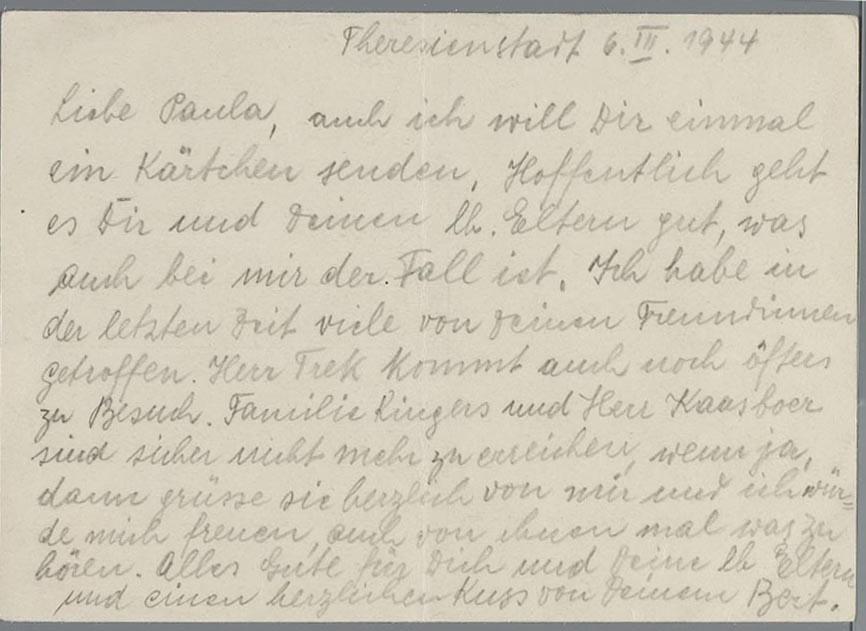 Theresienstadt 6.III.1944
Liebe Paula, auch ich will Dir einmal
ein Kärtchen senden, Hoffentlich geht
es Dir und Deinen lb. Eltern gut, was
auch bei mir der Fall ist. Ich habe in
der letzten Zeit viele von Deinen Freundinnen
getroffen. Herr Trek kommt auch noch öfters
zu Besuch. Familie Ringers und Herr Kaasboer
sind sicher nicht mehr zu erreichen, wenn ja,
dann grüsse sie herzlich von mir und ich wür=
de mich freuen, auch von ihnen mal was zu
hören. Alles Gute für Dich und Deine lb Eltern
und einen herzlichen Kuss von Deinem Bert.